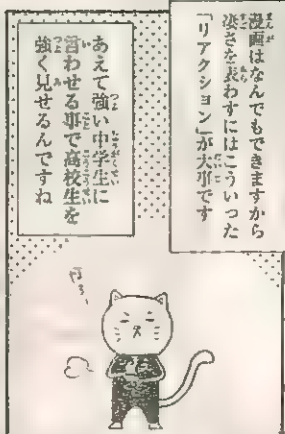 漫画はなんでもできますから
凄さを表わすにはこういった
「リアクション」が大事です
あえて強い中学生に
言わせる事で高校生を
強く見せるんですね